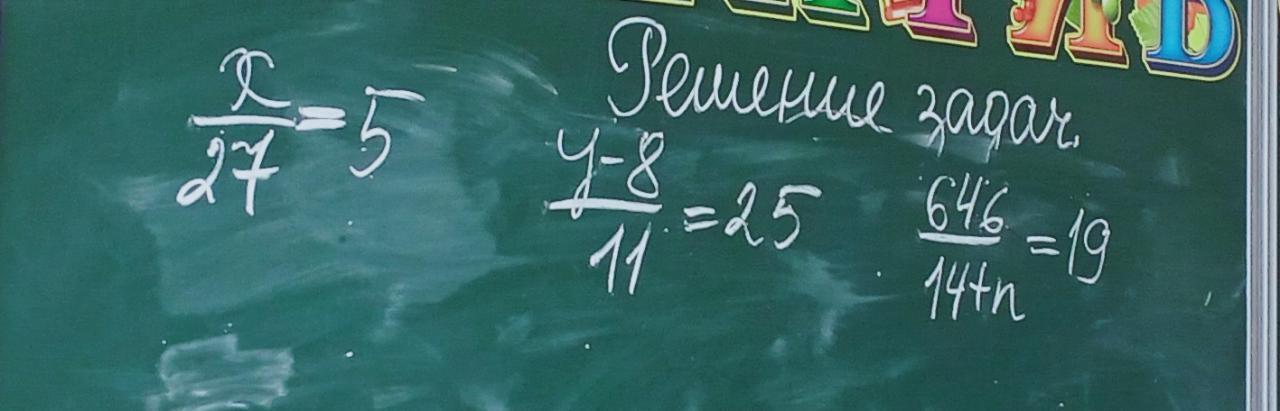 Решение задач.
x/27 = 5
у-8/11 = 25
646/14+n = 19